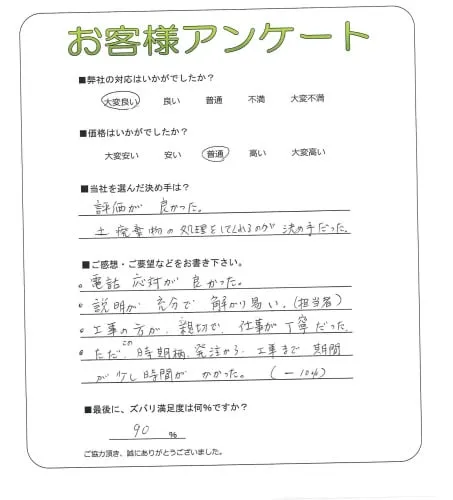 お客様アンケート
■弊社の対応はいかがでしたか？
大変良い 良い 普通 不満 大変不満
■価格はいかがでしたか？
大変安い 安い 普通 高い 大変高い
■当社を選んだ決め手は？
評価が 良かった。
土、廃棄物の処理をしてくれるのが 決め手だった。
■ご感想・ご要望などをお書き下さい。
。電話 応対が 良かった。
。説明が 充分で 解かり易い。(担当者)
。工事の方が、親切で、仕事が丁寧だった。
。ただ、この時期柄、発注から、工事まで 期間
が少し時間が かかった。 (－10%)
■最後に、ズバリ満足度は何％ですか？
90 ％
ご協力頂き、誠にありがとうございました。